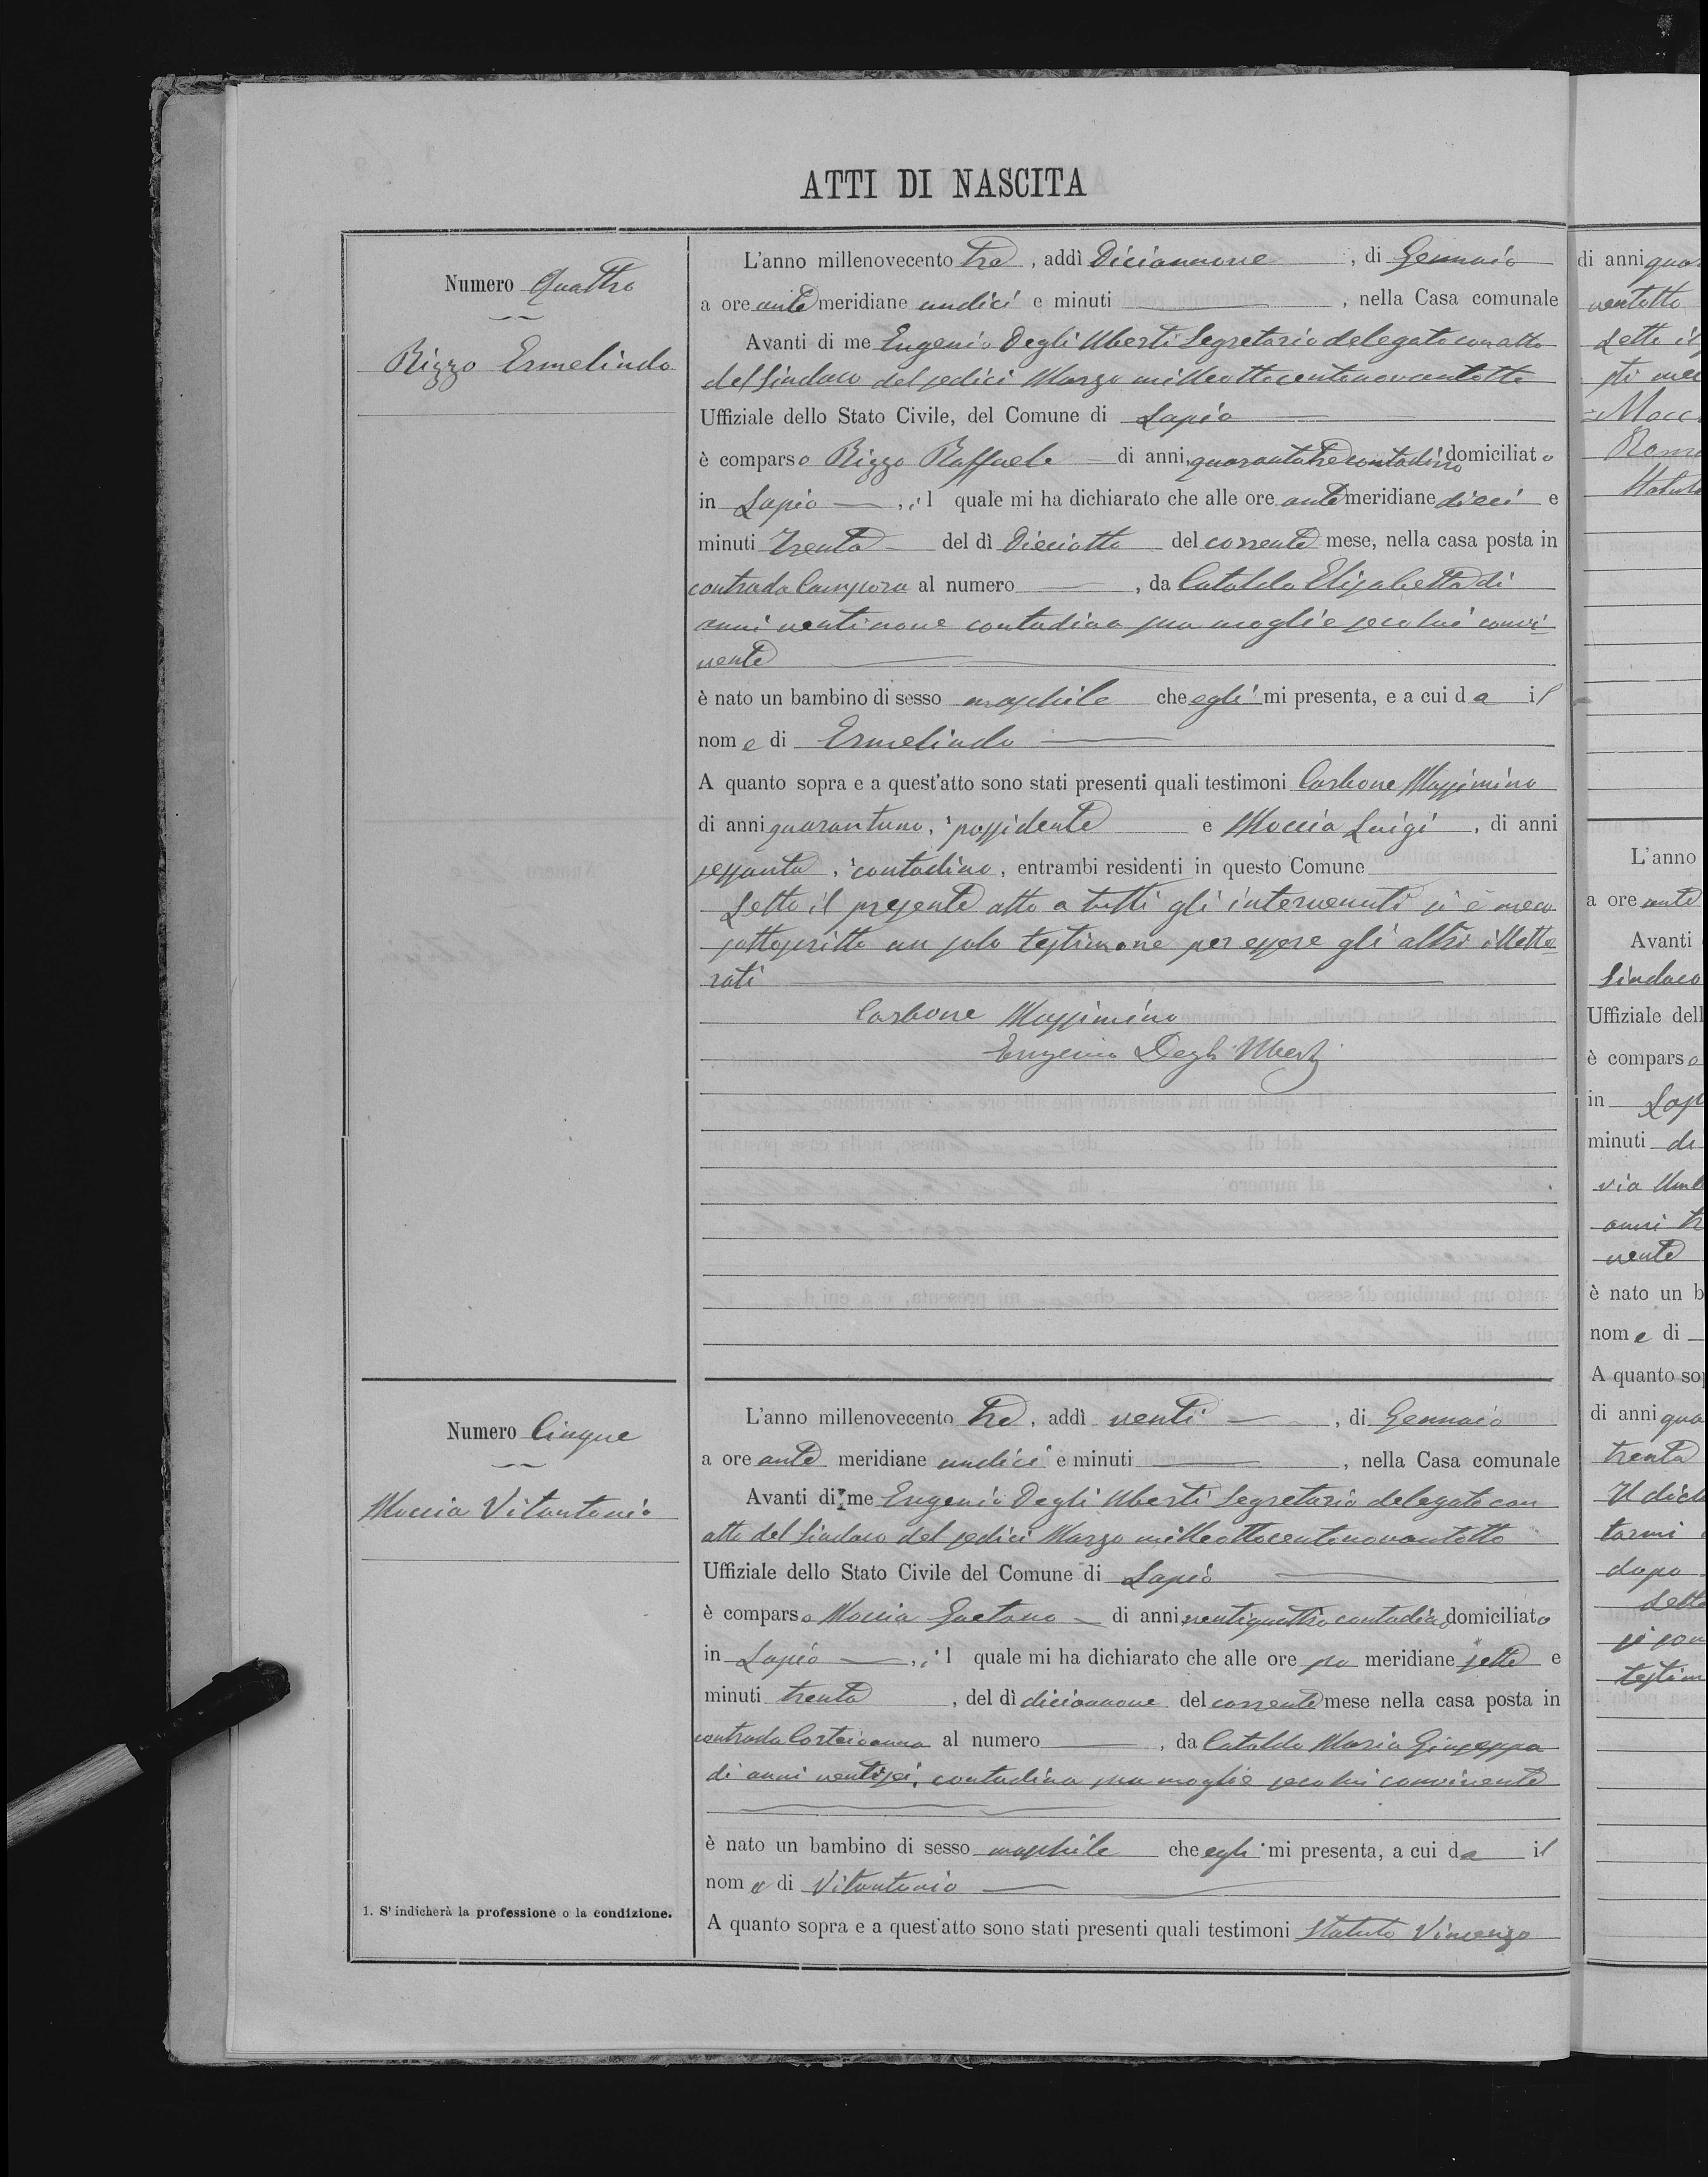 ATTI DI NASCITA
Numero Quattro
Rizzo Ermelindo
L'anno millenovecento tre, addì Diciannove, di Gennaio
a ore antemeridiane undici e minuti —, nella Casa comunale
Avanti di me Eugenio Degli Uberti Segretario delegato con atto
del Sindaco del sedici Marzo milleottocentonovantotto
Uffiziale dello Stato Civile, del Comune di Lapio —
è comparso Rizzo Raffaele — di anni, quarantatre contadino domiciliato
in Lapio —, il quale mi ha dichiarato che alle ore antemeridiane dieci e
minuti trenta — del dì Dieciotto del corrente mese, nella casa posta in
contrada Campora al numero —, da Cataldo Elisabetta di
anni ventinove contadina sua moglie seco lui convi-
vente
è nato un bambino di sesso maschile che egli mi presenta, e a cui da il
nome di Ermelindo —
A quanto sopra e a quest'atto sono stati presenti quali testimoni Carbone Massimino
di anni quarantuno, possidente e Moccia Luigi, di anni
sessanta, contadino, entrambi residenti in questo Comune
Letto il presente atto a tutti gli intervenuti si è meco
sottoscritto un solo testimone per essere gli altri illette-
rati
Carbone Massimino
Eugenio Degli Uberti
Numero Cinque
Moccia Vitantonio
L'anno millenovecento tre, addì venti —, di Gennaio
a ore ante meridiane undici e minuti —, nella Casa comunale
Avanti di me Eugenio Degli Uberti Segretario delegato con
atto del Sindaco del sedici Marzo milleottocentonovantotto
Uffiziale dello Stato Civile del Comune di Lapio
è comparso Moccia Gaetano — di anni ventiquattro contadino domiciliato
in Lapio —, il quale mi ha dichiarato che alle ore po meridiane sette e
minuti trenta, del dì diciannove del corrente mese nella casa posta in
contrada al numero —, da Cataldo Maria Giuseppa
di anni ventisei, contadina sua moglie seco lui convivente
è nato un bambino di sesso maschile che egli mi presenta, a cui da il
nome di Vitantonio —
A quanto sopra e a quest'atto sono stati presenti quali testimoni Statuto Vincenzo
1. S'indicherà la professione o la condizione.
di anni
ventotto
Letto
Sindaco
L'anno
a ore ante
Avanti
Uffiziale
è comparso
in
minuti
via
anni
vente
è nato un
nome di
A quanto
di anni
trenta
dopo